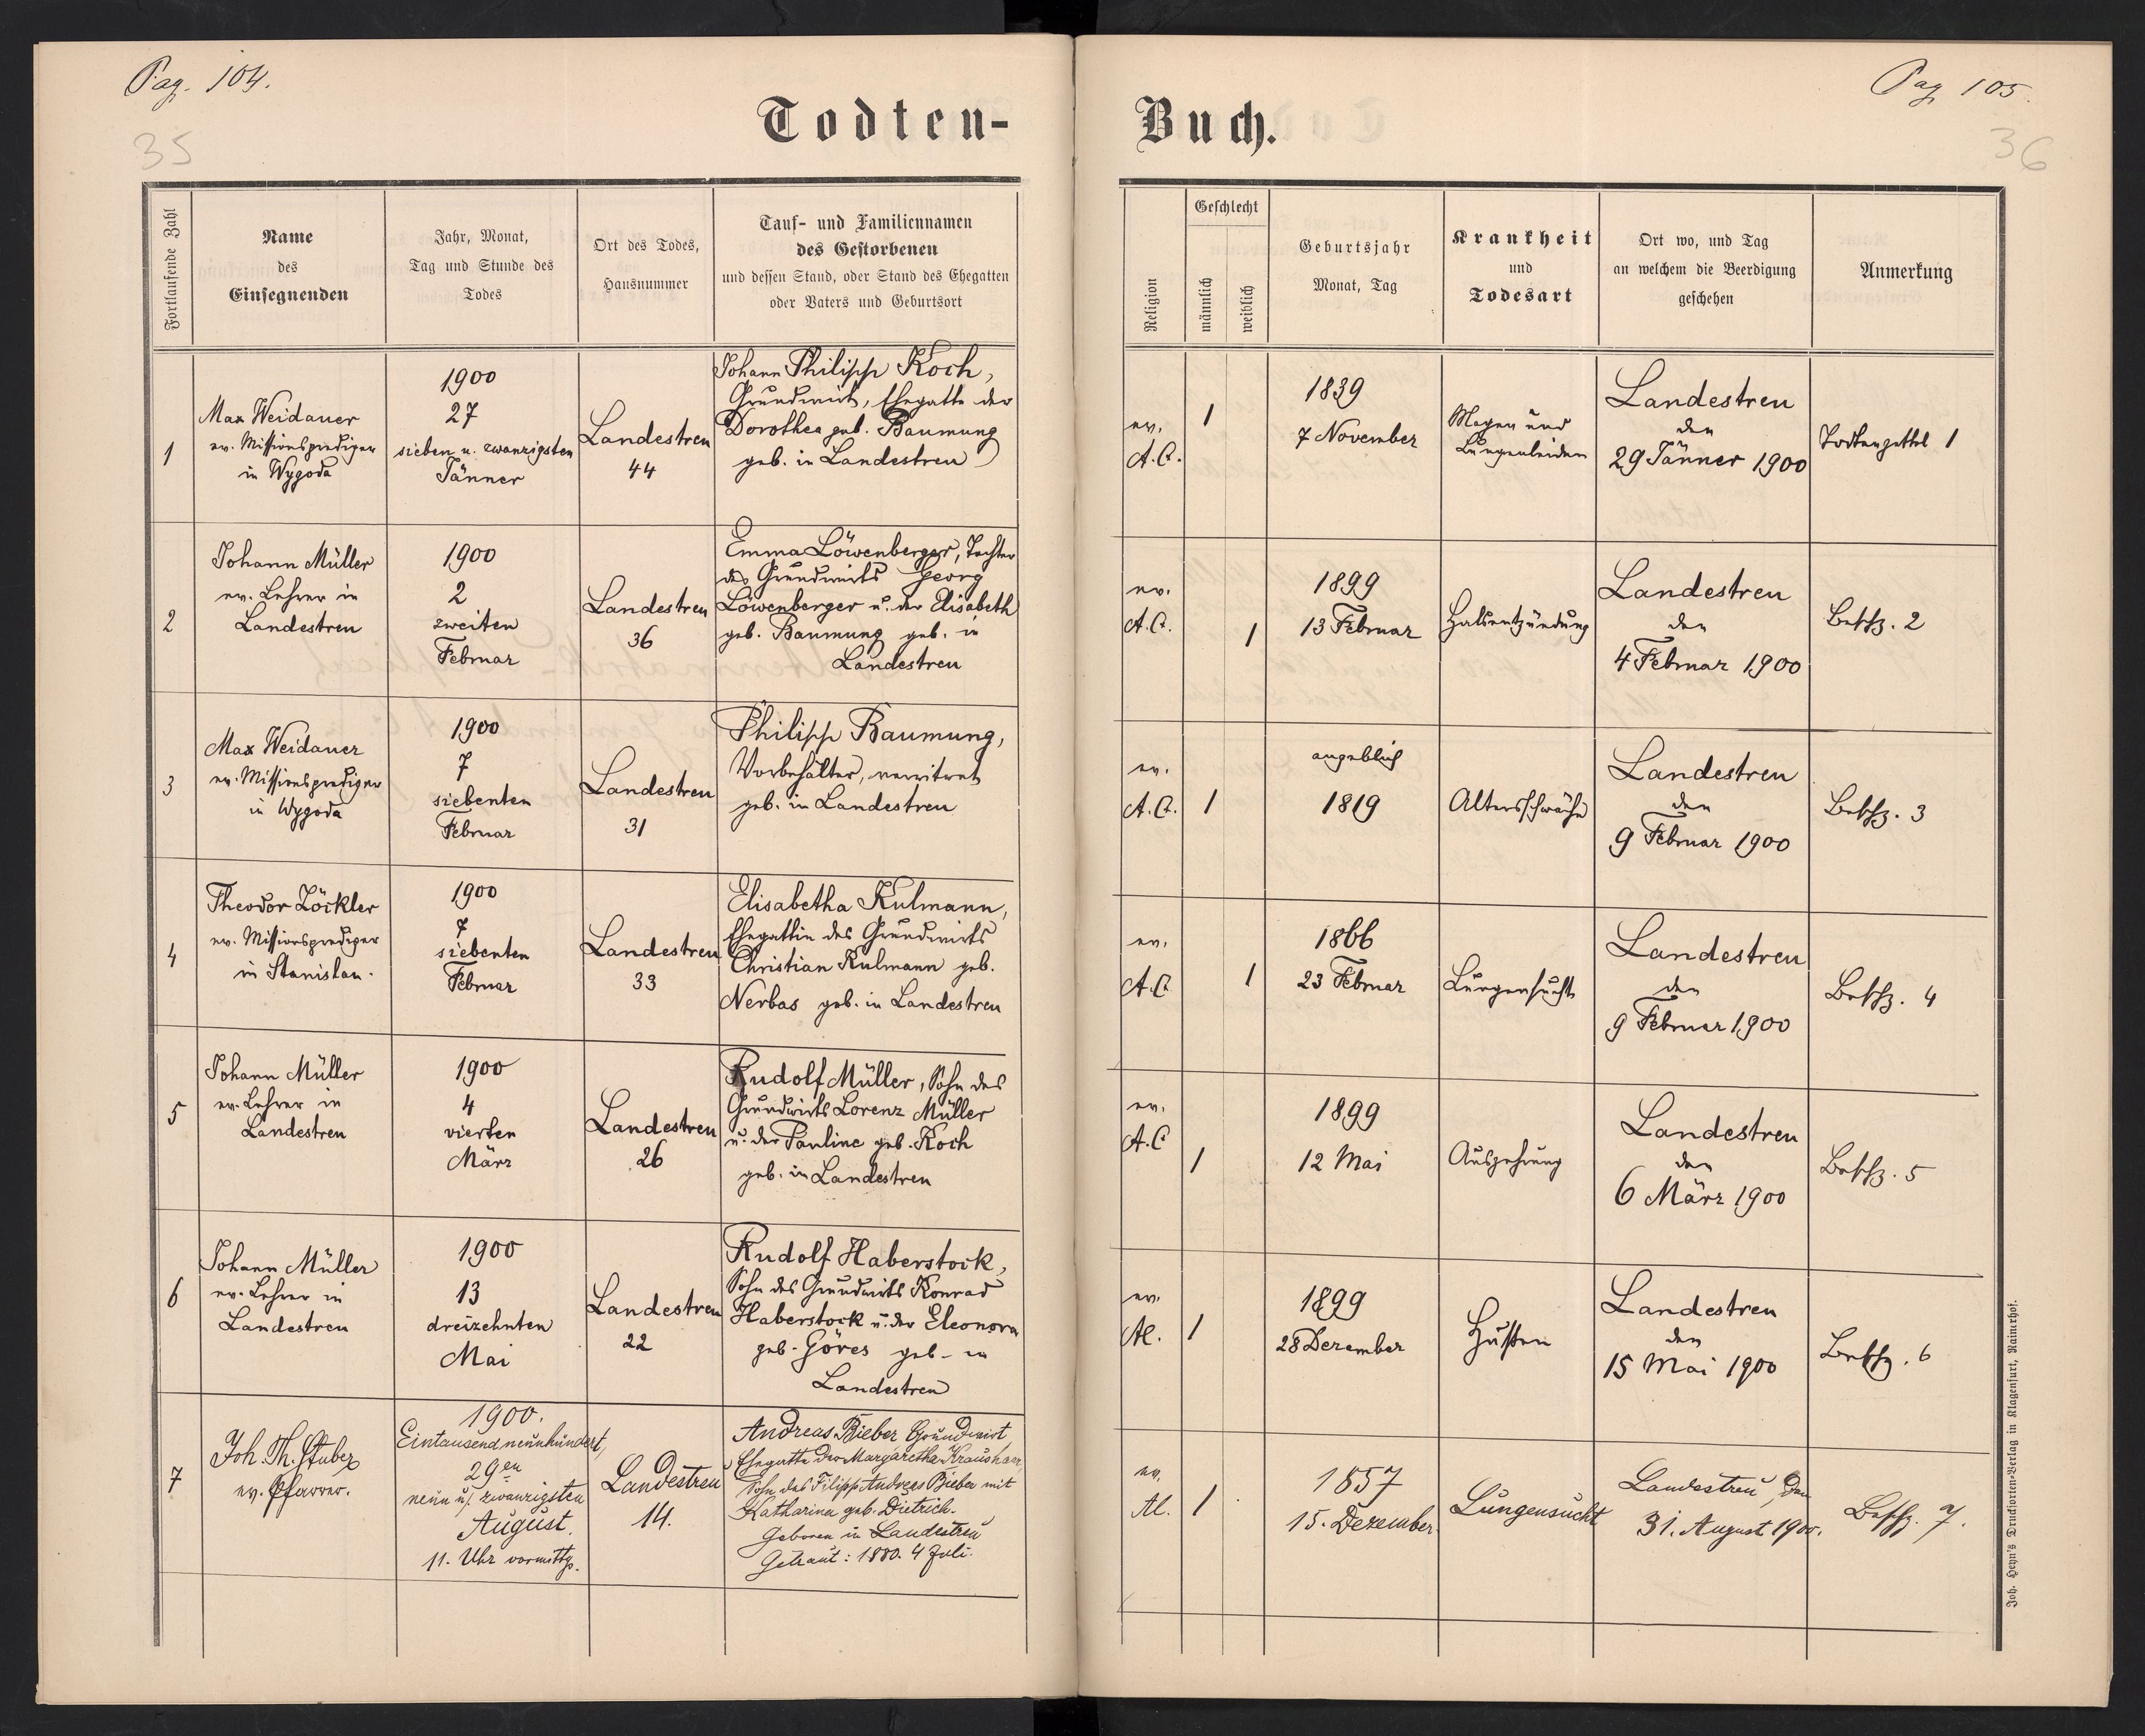 Pag. 104.
35
Todten-
Fortlaufende Zahl
Name
des
Einsegnenden
Jahr, Monat,
Tag und Stunde des
Todes
Ort des Todes,
Hausnummer
Tauf- und Familiennamen
des Gestorbenen
und dessen Stand, oder Stand des Ehegatten
oder Vaters und Geburtsort
1
Max Weidauer
ev. Missionsprediger
in Wygoda
1900
27
sieben u. zwanzigsten
Jänner
Landestreu
44
Johann Philipp Koch,
Grundwirt, Ehegatte der
Dorothea geb. Baumung
geb. in Landestreu
2
Johann Müller
ev. Lehrer in
Landestreu
1900
2
zweiten
Februar
Landestreu
36
Emma Löwenberger, Tochter
des Grundwirts Georg
Löwenberger u. der Elisabeth
geb. Baumung geb. in
Landestreu
3
Max Weidauer
ev. Missionsprediger
in Wygoda
1900
7
siebenten
Februar
Landestreu
31
Philipp Baumung,
Vorbehälter, verwitwet
geb. in Landestreu
4
Theodor Zöckler
ev. Missionsprediger
in Stanislau.
1900
7
siebenten
Februar
Landestreu
33
Elisabetha Kulmann,
Ehegattin des Grundwirts
Christian Kulmann geb.
Nerbas geb. in Landestreu
5
Johann Müller
ev. Lehrer in
Landestreu
1900
4
vierten
März
Landestreu
26
Rudolf Müller, Sohn des
Grundwirts Lorenz Müller
u. der Pauline geb. Koch
geb. in Landestreu
6
Johann Müller
ev. Lehrer in
Landestreu
1900
13
dreizehnten
Mai
Landestreu
22
Rudolf Haberstock,
Sohn des Grundwirts Konrad
Haberstock u. der Eleonora
geb. Göres geb. in
Landestreu
7
Joh. Th. Stuber
ev. Pfarrer.
1900.
Eintausendneunhundert,
29en
neun u. zwanzigsten
August.
11. Uhr vormittgs.
Landestreu
14.
Andreas Bieber Grundwirt
Ehegatte der Margaretha Kraushaar,
Sohn des Filipp Andreas Bieber mit
Katharina geb. Dietrich.
Geboren in Landestreu
Getraut: 1880. 4 Juli.
Pag 105.
36
Buch.
Religion
Geschlecht
männlich
weiblich
Geburtsjahr
Monat, Tag
Krankheit
und
Todesart
Ort wo, und Tag
an welchem die Beerdigung
geschehen
Anmerkung
ev.
A.C.
1
1839
7 November
Magen und
Lungenleiden
Landestreu
den
29 Jänner 1900
Todtenzettel 1
ev.
A.C.
1
1899
13 Februar
Halsentzündung
Landestreu
den
4 Februar 1900
2
ev.
A.C.
1
angeblich
1819
Altersschwäche
Landestreu
den
9 Februar 1900
3
ev.
A.C
1
1866
23 Februar
Lungensucht
Landestreu
den
9 Februar 1900
4
ev.
A.C
1
1899
12 Mai
Auszehrung
Landestreu
den
6 März 1900
5
ev.
1
1899
28 Dezember
Husten
Landestreu
den
15 Mai 1900
6
ev.
1
1857
15. Dezember.
Lungensucht
Landestreu, den
31. August 1900.
7.
Joh. Heyn's Drucksorten-Verlag in Klagenfurt, Rainerhof.